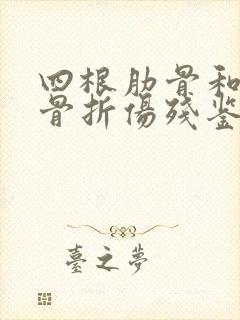 四根肋骨和
骨折傷殘鉴
臺之夢